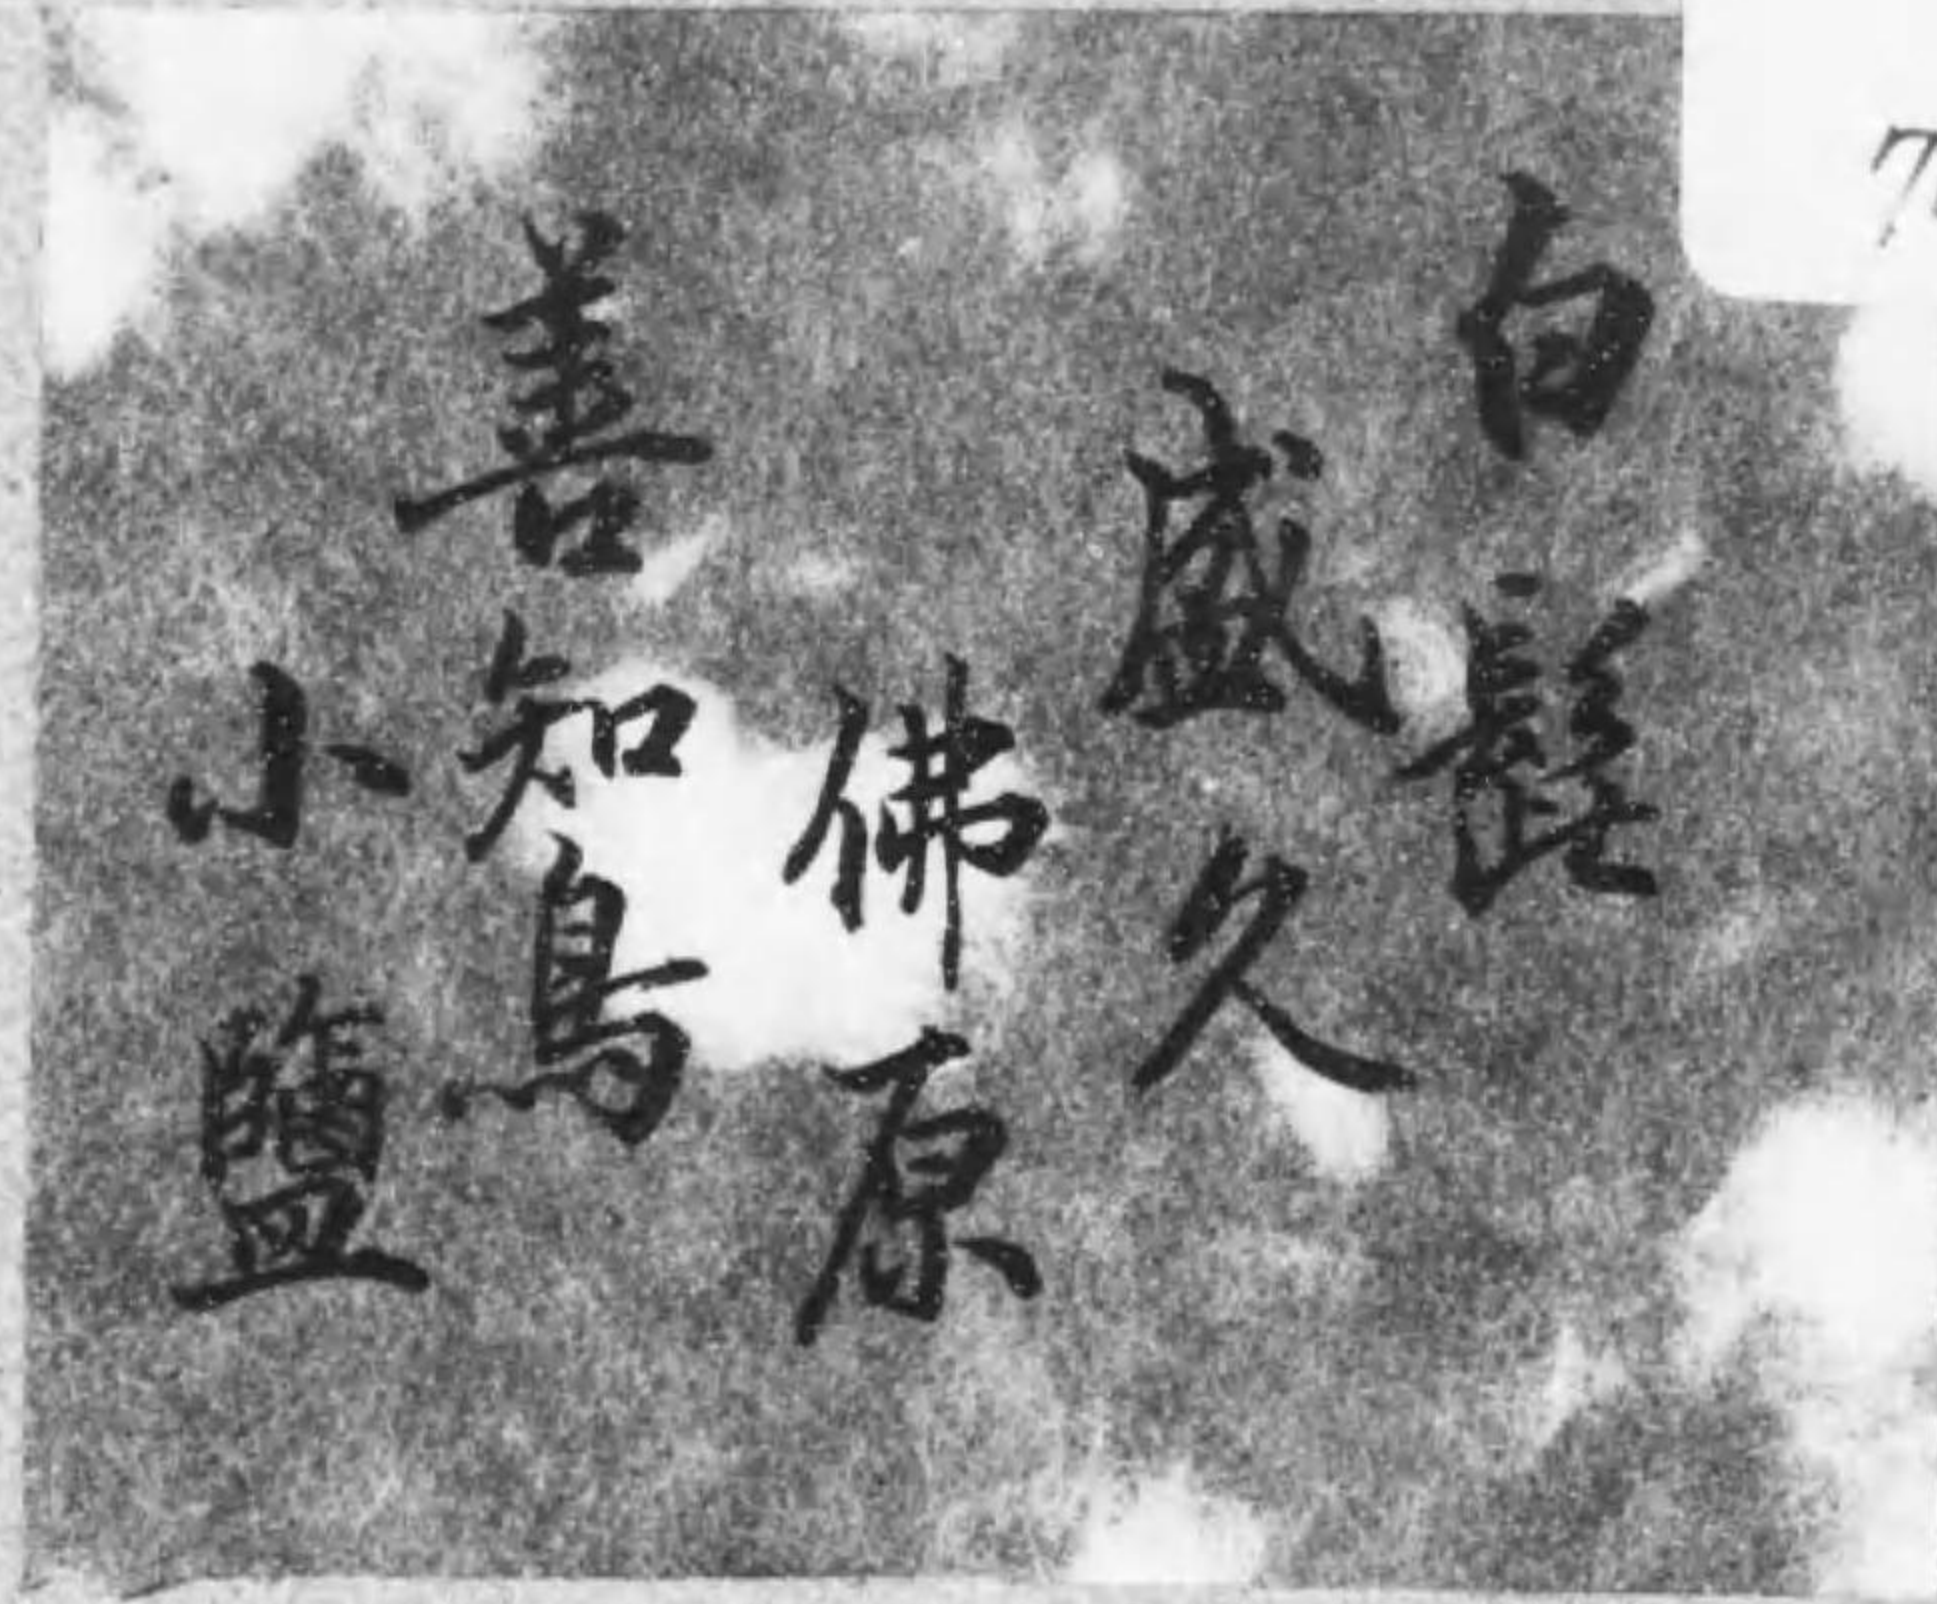 白髭
盛久
佛原
善知鳥
小鹽